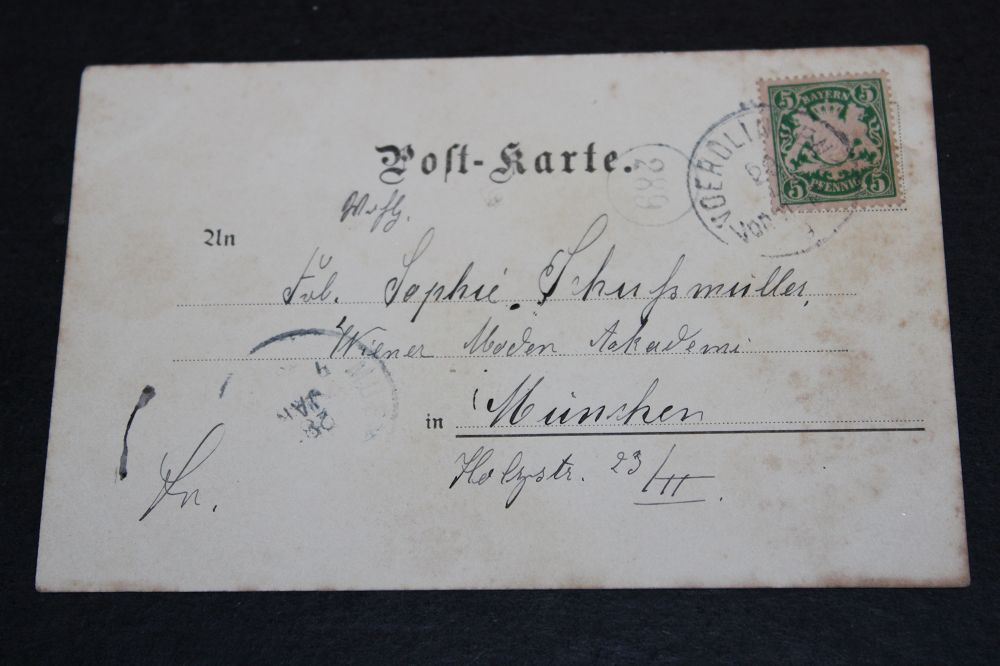 Post-Karte.
289
5 BAYERN 5
5 PFENNIG 5
An
Frl. Sophie Schußmüller,
Wiener Moden Aakademi
in München
Holzstr. 23/III.
28
JAN